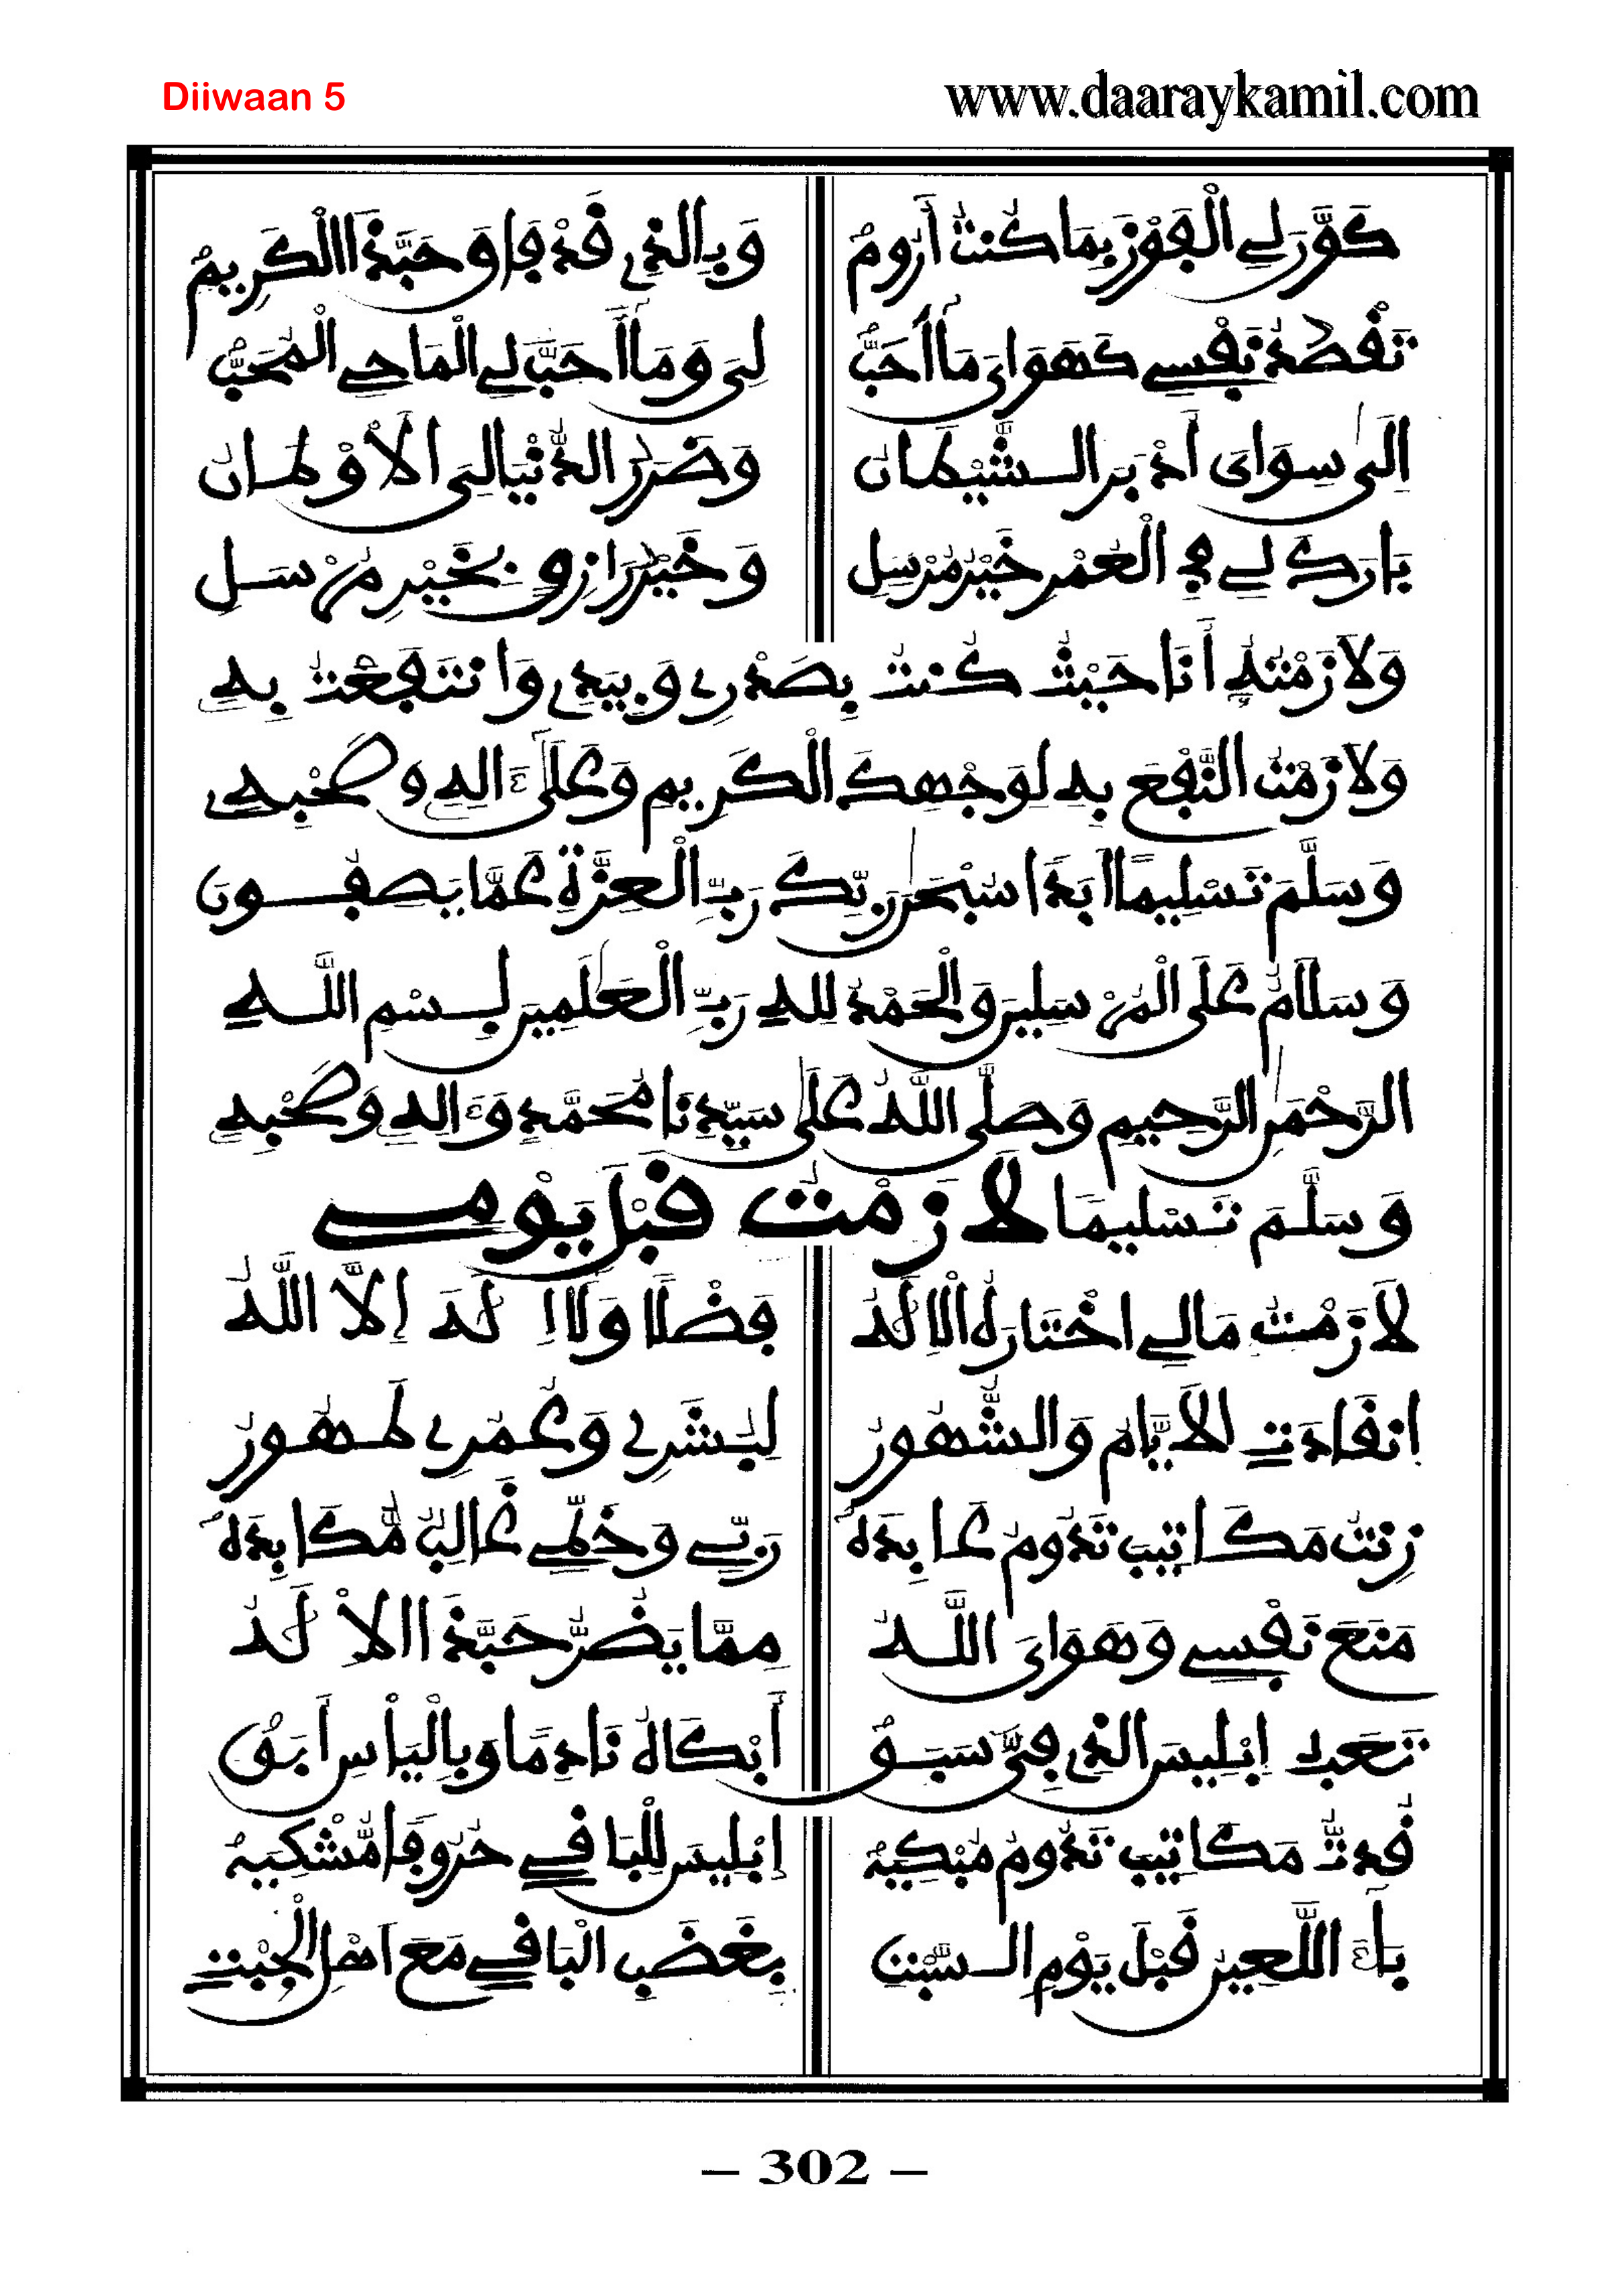 Diiwaan 5
www.daaraykamil.com
كَوَّرَ لِي الْفَوْزَ بِمَا كُنتُ أَرُومُ وَبِالذِي قَدْ فَاوَ حَبَّذَا الْكَرِيمُ
تَقْصُدُ نَفْسِي كَهَوَايَ مَا أُحِبُّ لِي وَمَا أَحَبَّ لِي الْمَاحِي الْمُحِبُّ
إِلَى سِوَايَ أَدْبَرَ الشَّيْطَانُ وَضَرَرُ الدُّنْيَا لِيَ الْأَوْطَانُ
بَارَكَ لِي فِي الْعُمْرِ خَيْرُ مُرْسِلِ وَخَيْرُ رَازِقٍ بِخَيْرِ مُرْسَلِ
وَلَازَمْتُهُ أَنَا حَيْثُ كُنتُ بِصَدْرِي وَبِيَدِي وَانتَفَعْتُ بِهِ
وَلَازَمْتُ النَّفْعَ بِهِ لِوَجْهِكَ الْكَرِيمِ وَعَلَى ءَالِهِ وَصَحْبِهِ
وَسَلِّمْ تَسْلِيمًا أَبَدًا سُبْحَٰنَ رَبِّكَ رَبِّ الْعِزَّةِ عَمَّا يَصِفُونَ
وَسَلَامٌ عَلَى الْمُرْسَلِينَ وَالْحَمْدُ لِلهِ رَبِّ الْعَٰلَمِينَ بِسْمِ اللَّهِ
الرَّحْمَٰنِ الرَّحِيمِ وَصَلَّى اللَّهُ عَلَى سَيِّدِنَا مُحَمَّدٍ وَءَالِهِ وَصَحْبِهِ
وَسَلَّمَ تَسْلِيمًا لَازَمْتُ قَبْلَ يَوْمِي
لَازَمْتُ مَا لِي اخْتَارَهُ الْإِلَٰهُ فَضْلًا وَلَا إِلَٰهَ إِلَّا اللَّهُ
انقَادَتِ الْأَيَّامُ وَالشُّهُورُ لِبَشَرِي وَعُمُرِي طَهُورُ
زِنتُ مَكَاتِيبَ تَدُومُ عَابِدَهْ رَبِّي وَخَطِّي غَالِبٌ مُّكَابِدَهْ
مَنَعَ نَفْسِي وَهَوَايَ اللَّهُ مِمَّا يَضُرُّ حَبَّذَا الْإِلَٰهُ
تَعَبُدِ إِبْلِيسَ الذِي فِيَّ سَبَقْ أَبْكَاهُ نَادِمًا وَبِالْيَأْسِ أَبَقْ
قُدتُّ مَكَاتِيبَ تَدُومُ مُبْكِيَهْ إِبْلِيسَ لِلْبَاقِي حُرُوفًا مُّشْكِيَهْ
بَاءَ اللَّعِينُ قَبْلَ يَوْمِ السَّبْتِ بِغَضَبِ الْبَاقِي مَعَ أَهْلِ الْجِبْتِ
– 302 –